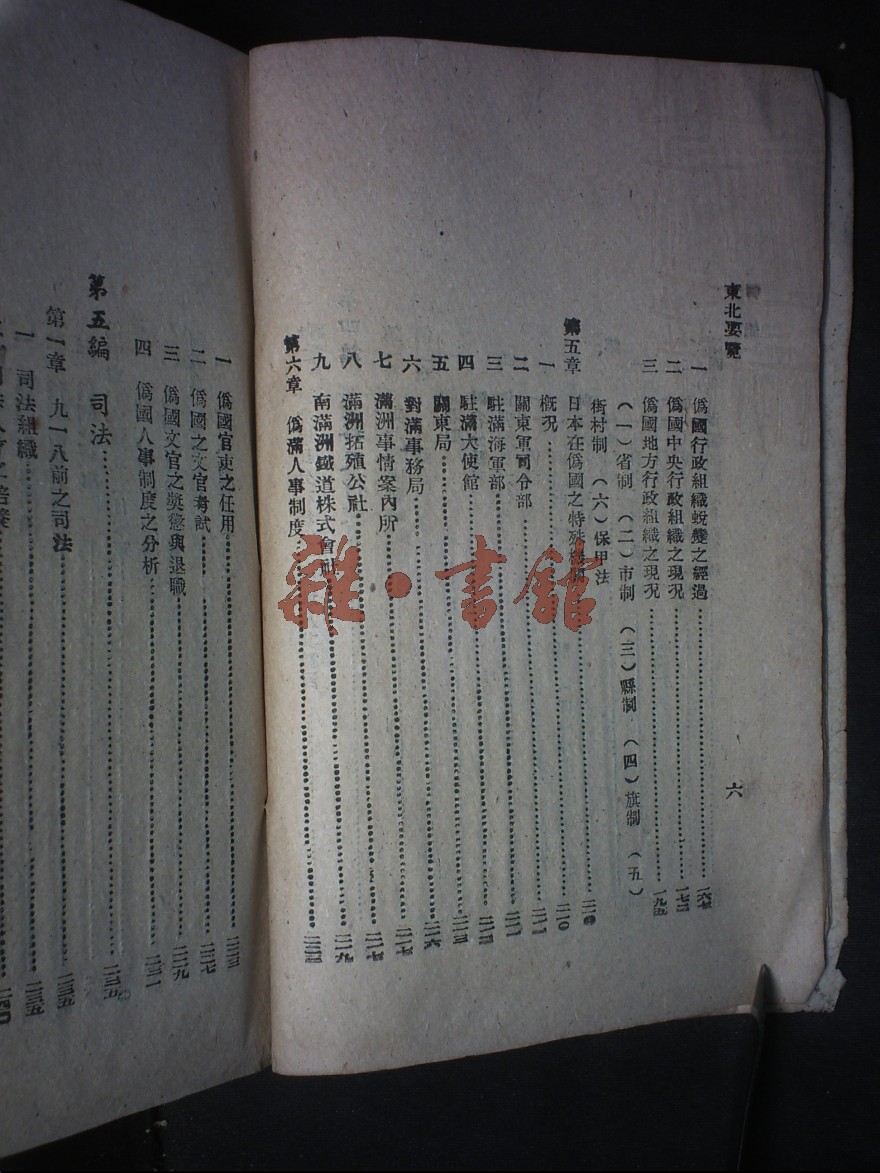 東北要覽
六
一 僞國行政組織蛻變之經過 一六七
二 僞國中央行政組織之現况 一七二
三 僞國地方行政組織之現况 一九五
(一)省制 (二)市制 (三)縣制 (四)旗制 (五)
街村制 (六)保甲法
第五章 日本在僞國之特殊機關 二一〇
一 概况 二一一
二 關東軍司令部 二一一
三 駐滿海軍部
四 駐滿大使館
五 關東局 二一六
六 對滿事務局 二一七
七 滿洲事情案內所 二一七
八 滿洲拓殖公社 二一九
九 南滿洲鐵道株式會社
第六章 僞滿人事制度
一 僞國官吏之任用 二二三
二 僞國之文官考試 二二七
三 僞國文官之奬懲與退職 二二九
四 僞國人事制度之分析 二三一
第五編 司法 二三五
第一章 九一八前之司法 二三五
一 司法組織 二三五
雜·書館